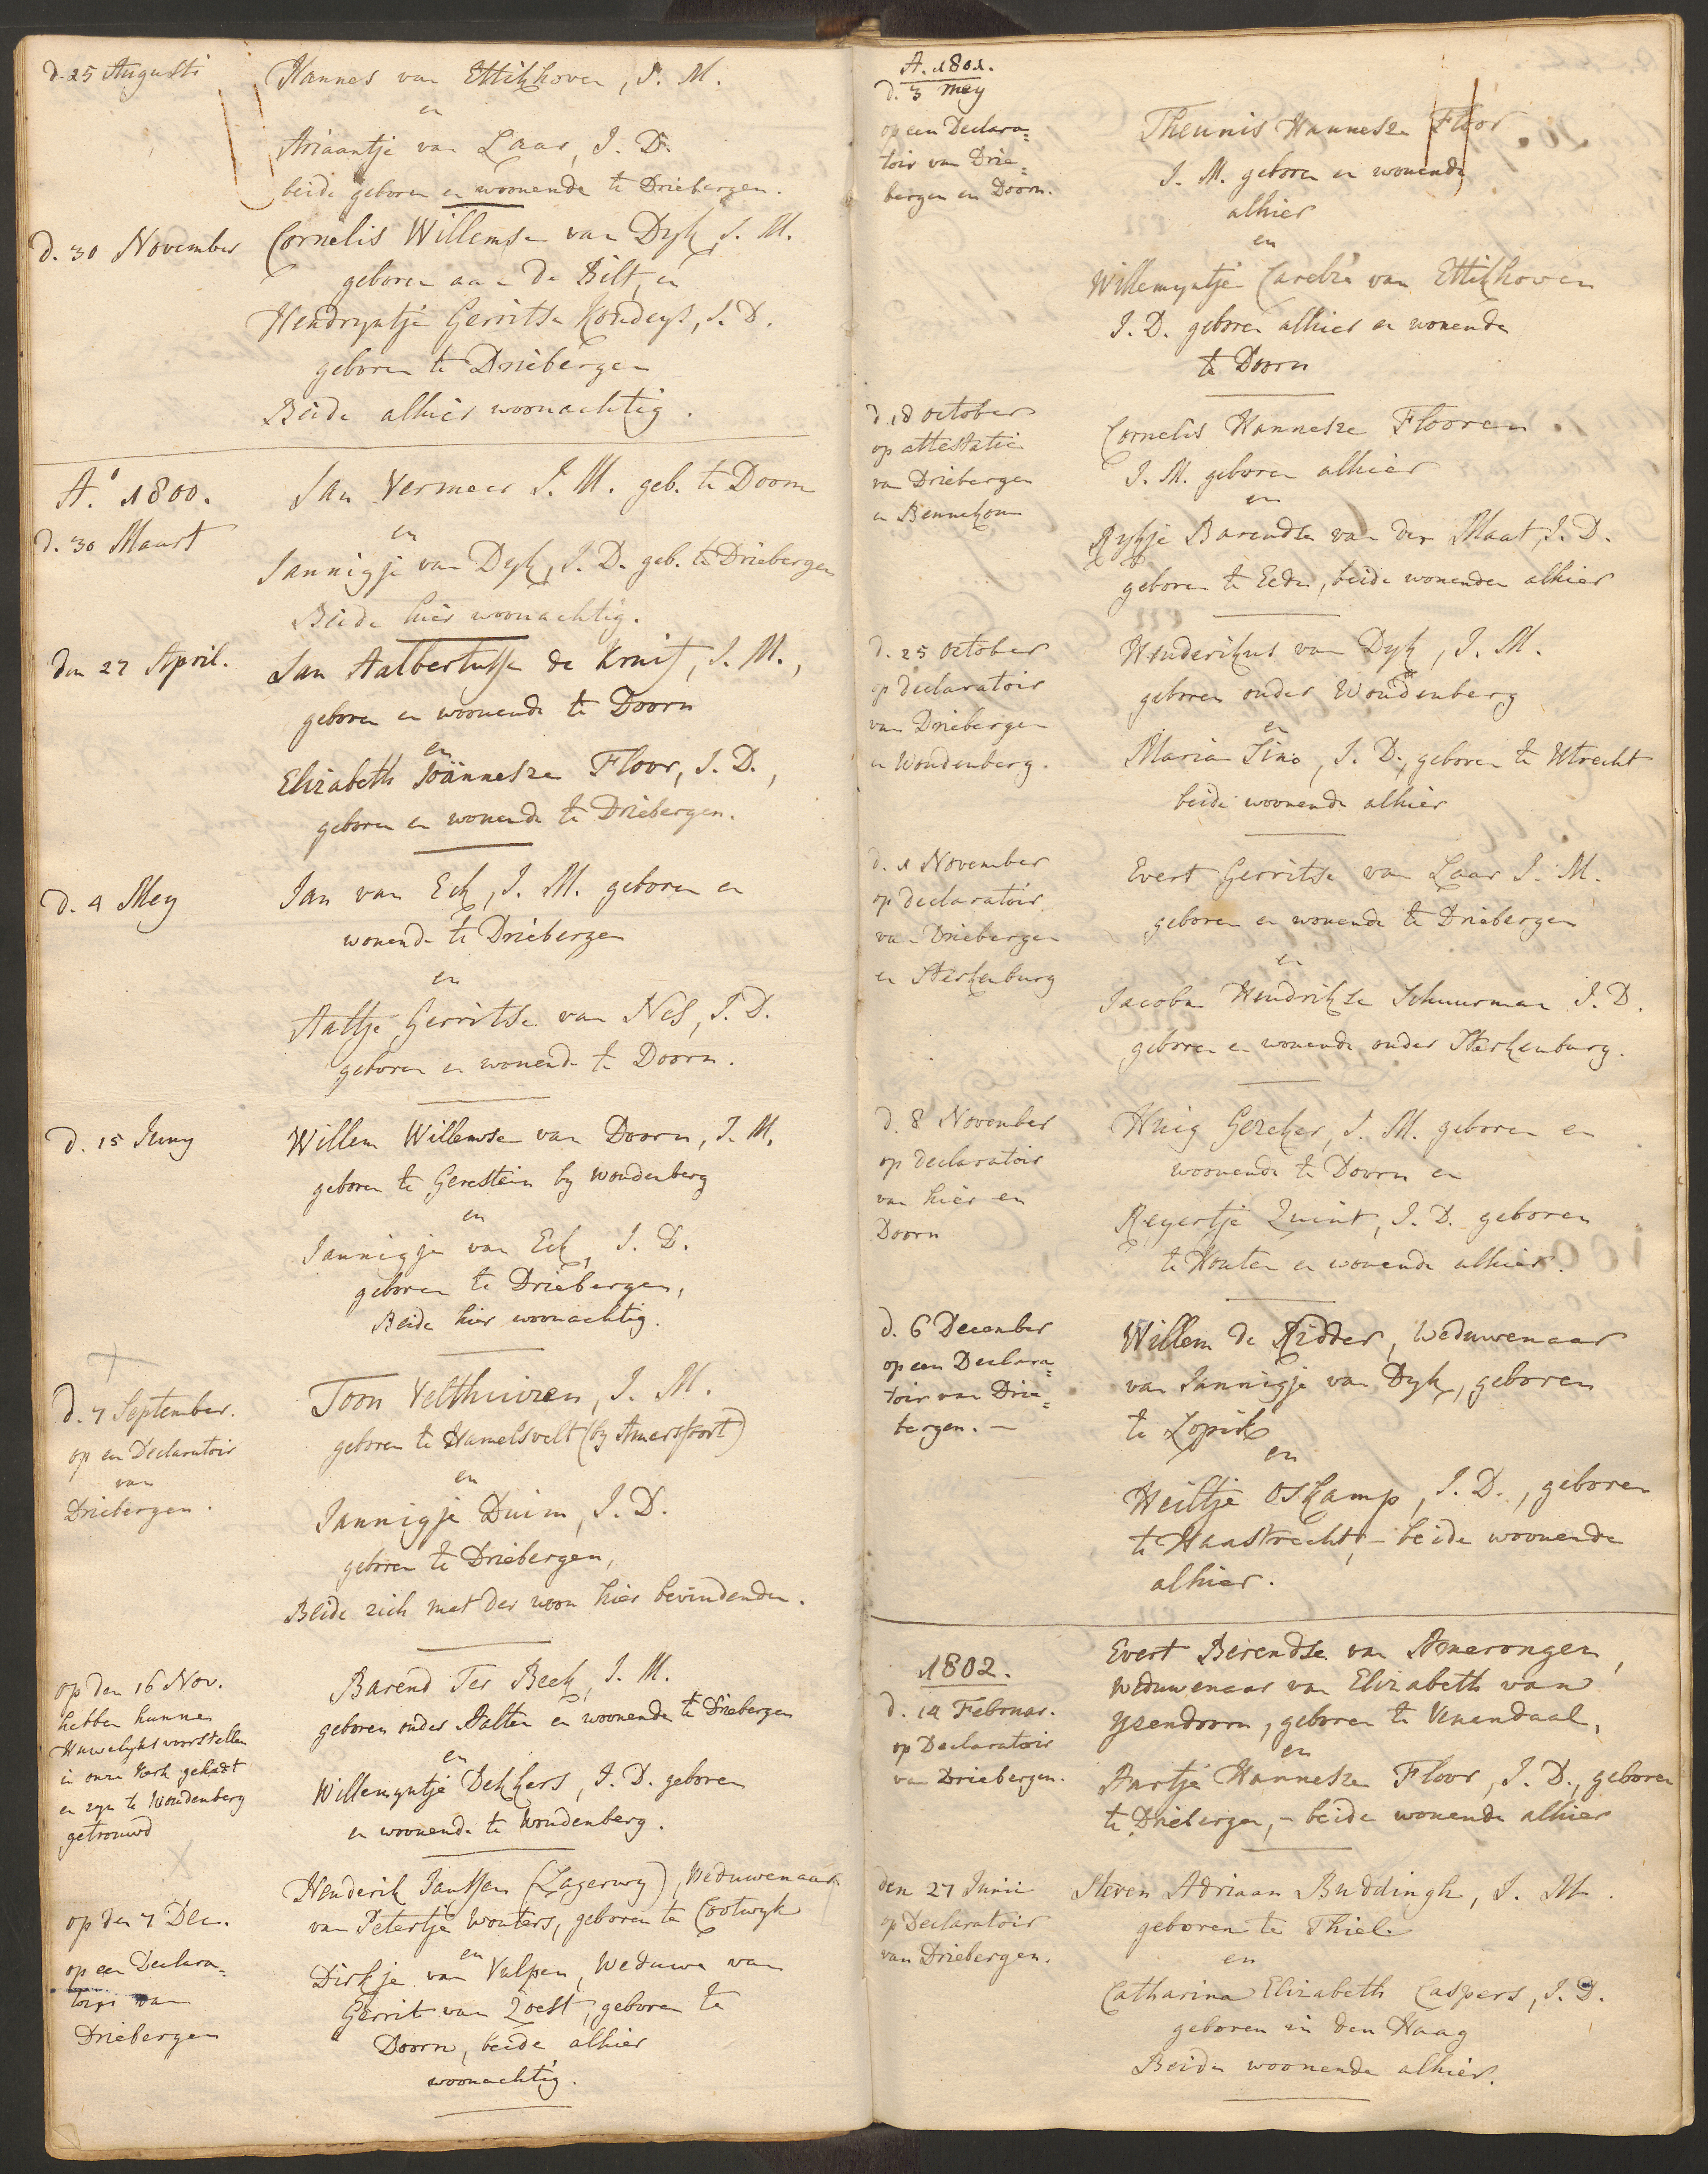 d. 25 Augusti
Hannes van Ettikhoven, J. M.
en
Ariaantje van Laar, J. D.
beide geboren en woonende te Driebergen.
d. 30 November
Cornelis Willemse van Dyk, J. M.
geboren aan de Bilt, en
Hendryntje Gerritse Koudeys, J. D.
geboren te Driebergen
Beide alhier woonachtig.
A.o 1800.
d. 30 Maart
Jan Vermeer J. M. geb. te Doorn
en
Jannigje van Dyk, J. D. geb. te Driebergen
Beide hier woonachtig.
den 27 April.
Jan Aalbertusse de Kruif, J. M.,
geboren en woonende te Doorn
en
Elizabeth Joännesze Floor, J. D.,
geboren en wonende te Driebergen.
d. 4 Mey
Jan van Eck, J. M. geboren en
wonende te Driebergen
en
Aaltje Gerritse van Nes, J. D.
geboren en wonende te Doorn.
d. 15 Juny
Willem Willemse van Doorn, J. M.
geboren te Gerestein by Woudenberg
en
Jannigje van Eck, J. D.
geboren te Driebergen,
Beide hier woonachtig.
d. 7 September.
op een Declaratoir
van
Driebergen.
Toon Velthuizen, J. M.
geboren te Hamelsvelt (by Amersfoort)
en
Jannigje Duim, J. D.
geboren te Driebergen,
Beide zich met der woon hier bevindenden.
op den 16 Nov.
hebben hunne
Huwelyks voorstellen
in onze Kerk gehadt
en zyn te Woudenberg
getrouwd
Barend Ter Beek, J. M.
geboren onder Aalten en woonende te Driebergen
en
Willemyntje Dekkers, J. D. geboren
en woonende te Woudenberg.
op den 7 Dec.
op een Declara=
toir van
Driebergen
Henderik Janssen (Lagerwey), Weduwenaar
van Petertje Wouters, geboren te Cootwyk
en
Dirkje van Vulpen, Weduwe van
Gerrit van Zoest, geboren te
Doorn, beide alhier
woonachtig.
A. 1801.
d. 3 Mey
op een Declara=
toir van Drie=
bergen en Doorn.
Theunis Hannesze Floor
J. M. geboren en wonende
alhier
en
Willemyntje Carelze van Ettikhoven
J. D. geboren alhier en wonende
te Doorn
d. 18 October
op attestatie
van Driebergen
en Bennekom
Cornelis Hannesze Flooren
J. M. geboren alhier
en
Rykje Barendse van der Maat, J. D.
geboren te Ede, beide wonenden alhier
d. 25 October
op declaratoir
van Driebergen
en Woudenberg.
Henderikus van Dyk, J. M.
geboren onder Woudenberg
en
Maria Sino, J. D., geboren te Utrecht
beide woonende alhier
d. 1 November
op declaratoir
van Driebergen
en Sterkenburg
Evert Gerritse van Laar J. M.
geboren en wonende te Driebergen
en
Jacoba Hendrikse Schuurman J. D.
geboren en wonende onder Sterkenburg.
d. 8 November
op declaratoir
van hier en
Doorn
Huig Gezeker, J. M. geboren en
woonende te Doorn en
Reyertje Quint, J. D. geboren
te Houten en wonende alhier.
d. 6 December
op een Declara=
toir van Drie=
bergen. —
Willem de Ridder, Weduwenaar
van Jannigje van Dyk, geboren
te Lopik
en
Heiltje Oskamp, J. D., geboren
te Haastrecht, – beide woonende
alhier.
1802.
d. 14 Februar.
op Declaratoir
van Driebergen.
Evert Berendse van Amerongen,
Weduwenaar van Elizabeth van
Ysendoorn, geboren te Venendaal,
en
Aartje Hannesze Floor, J. D., geboren
te Driebergen, – beide wonende alhier
den 27 Junii
op Declaratoir
van Driebergen.
Steven Adriaan Buddingh, J. M.
geboren te Thiel
en
Catharina Elizabeth Caspers, J. D.
geboren in den Haag
Beiden woonende alhier.